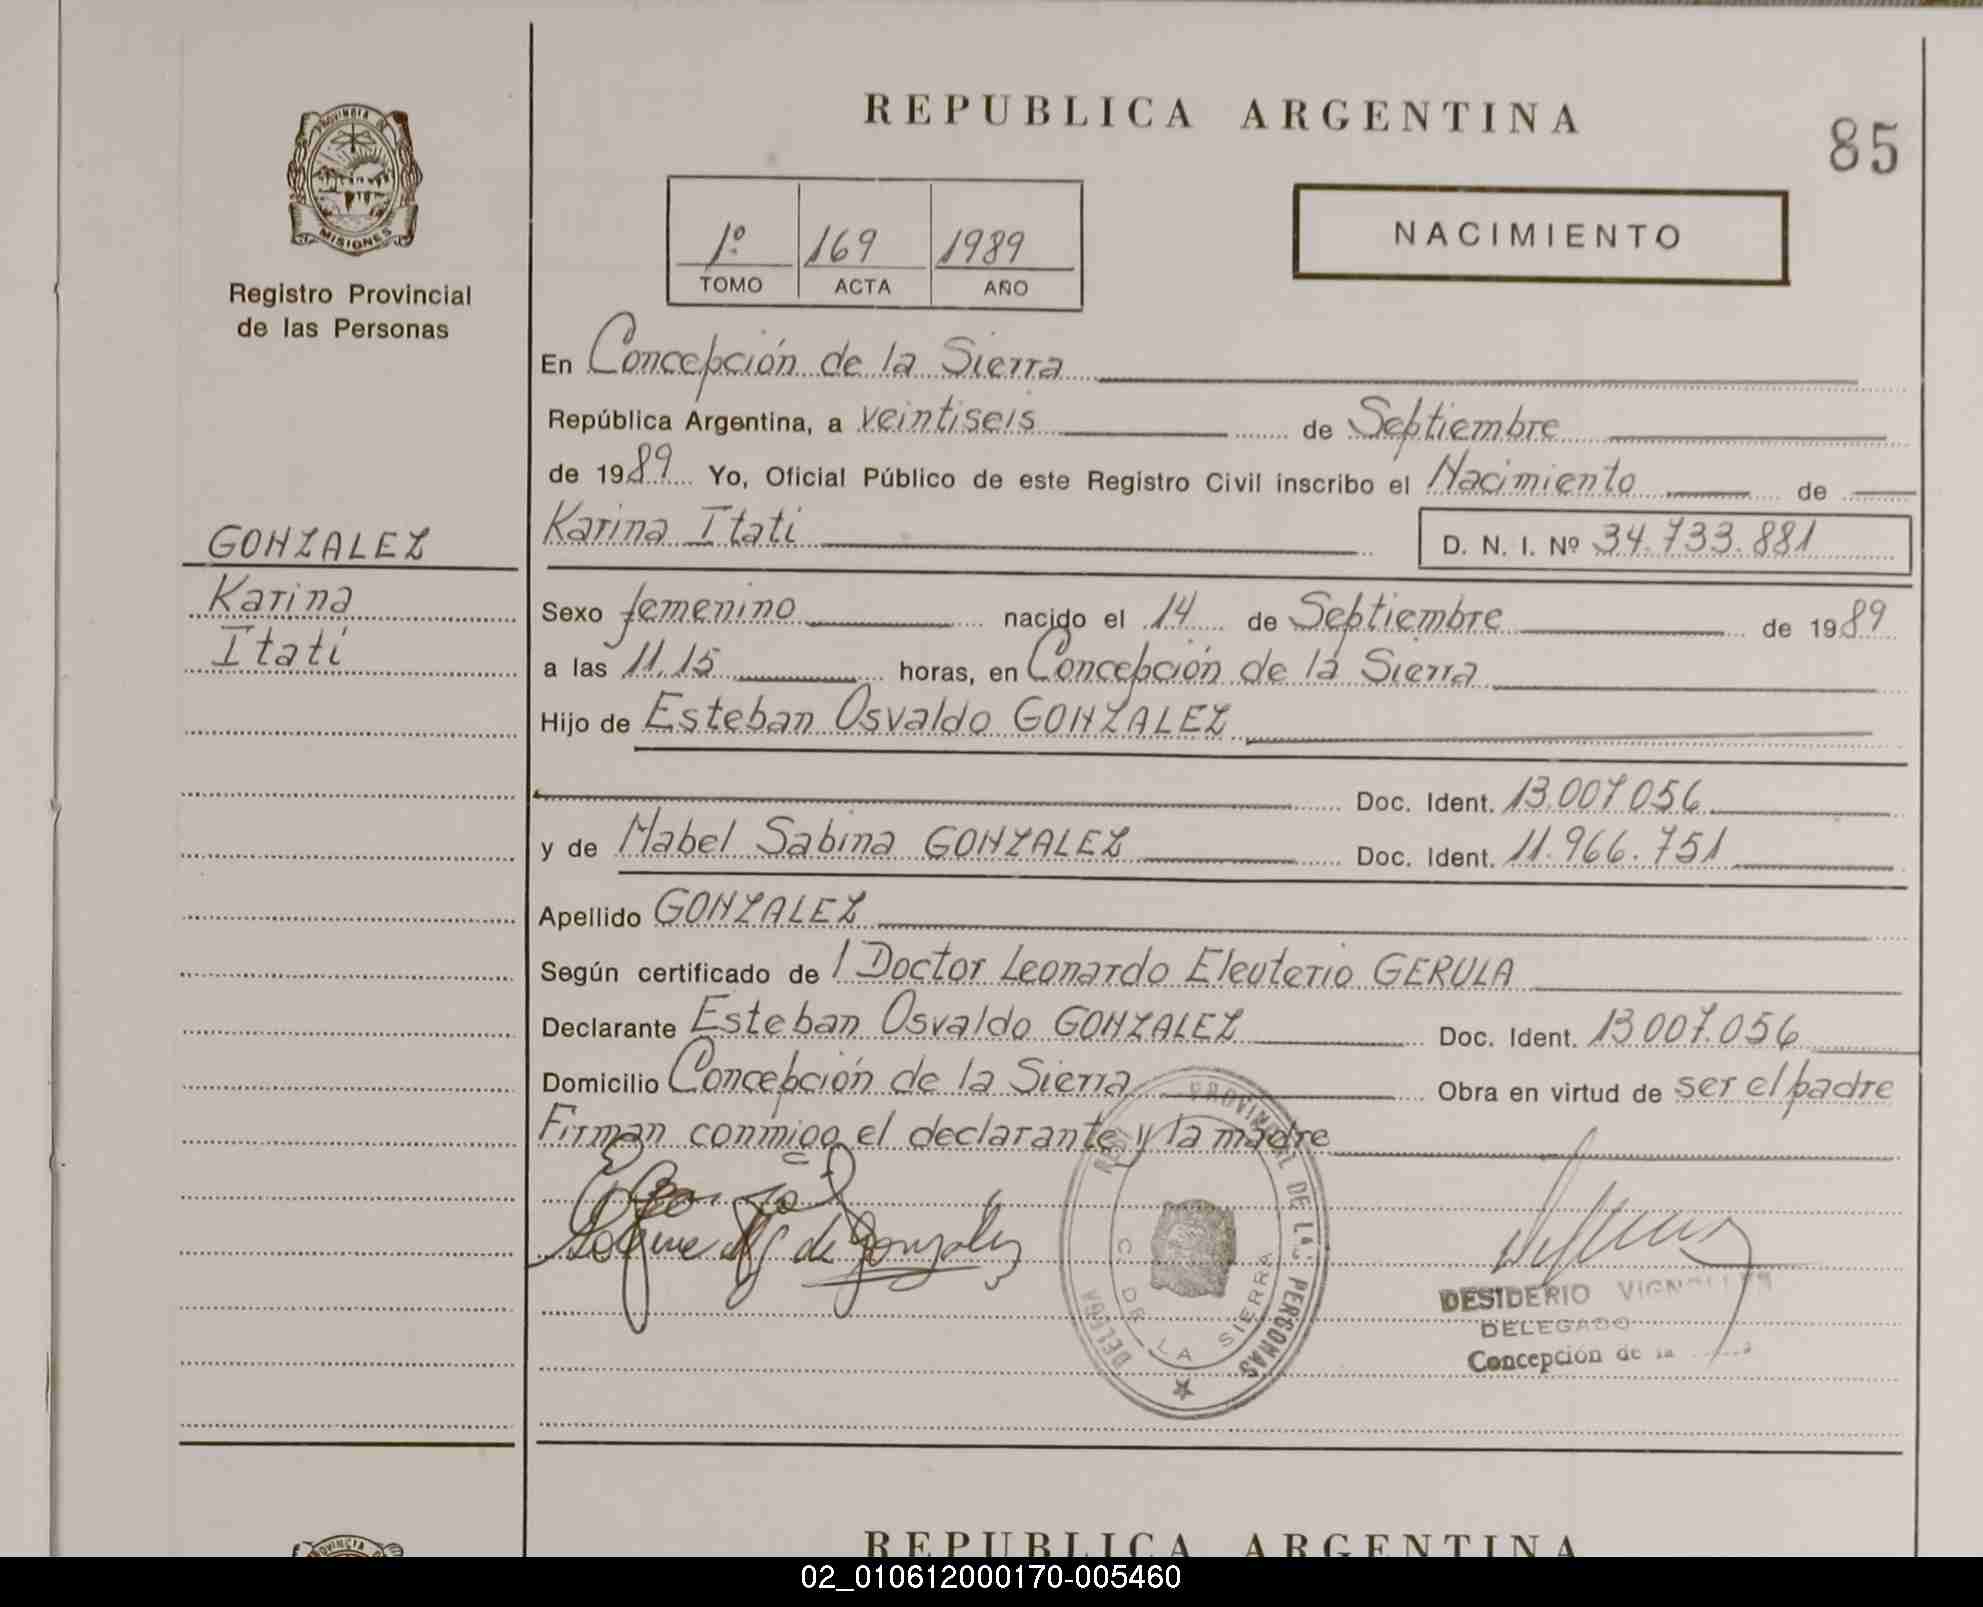 REPUBLICA ARGENTINA
85
PROVINCIA DE
MISIONES
Registro Provincial
de las Personas
1º 169 1989
TOMO ACTA AÑO
NACIMIENTO
En Concepción de la Sierra
República Argentina, a veintiseis de Septiembre
de 1989 Yo, Oficial Público de este Registro Civil inscribo el Nacimiento de
Karina Itati D. N. I. Nº 34.733.881
GONZALEZ
Karina
Itatí
Sexo femenino nacido el 14 de Septiembre de 1989
a las 11.15 horas, en Concepción de la Sierra
Hijo de Esteban Osvaldo GONZALEZ
Doc. Ident. 13.007.056
y de Mabel Sabina GONZALEZ Doc. Ident. 11.966.751
Apellido GONZALEZ
Según certificado de l Doctor Leonardo Eleuterio GERULA
Declarante Esteban Osvaldo GONZALEZ Doc. Ident. 13.007.056
Domicilio Concepción de la Sierra Obra en virtud de ser el padre
Firman conmigo el declarante y la madre
PROVINCIAL DE LAS PERSONAS
C. DE LA SIERRA
de Gonzalez
DESIDERIO
DELEGADO
Concepción de la
PROVINCIA
REPUBLICA ARGENTINA
02_010612000170-005460